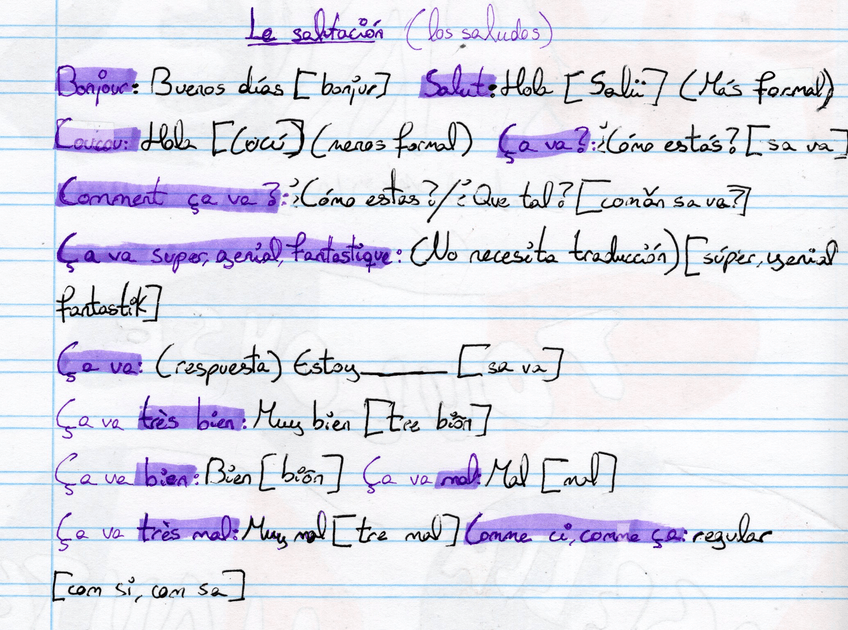 La salutación (los saludos)
Bonjour: Buenos días [bonjur] Salut: Hola [Salü] (Más formal)
Coucou: Hola [Cocú] (menos formal) Ça va?: ¿Cómo estás? [sa va]
Comment ça va?: ¿Cómo estas?/¿Que tal? [comăn sa va?]
Ça va super, genial, fantastique: (No necesita traducción) [súper, yenial
fantastik]
Ça va: (respuesta) Estoy______ [sa va]
Ça va très bien: Muy bien [tre biön]
Ça va bien: Bien [biön] Ça va mal: Mal [mal]
Ça va très mal: Muy mal [tre mal] Comme ci, comme ça: regular
[com si, com sa]